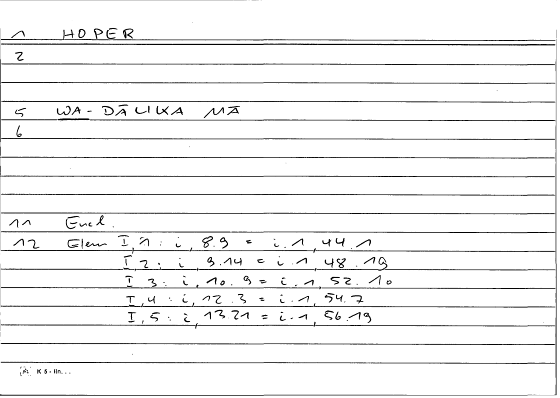 1 HOPER
2
5 WA-ḎĀLIKA MĀ
6
11 Eucl.
12 Elem I,1: i, 8.9 = i.1, 44.1
I,2: i, 9.14 = i.1, 48.19
I,3: i, 10.9 = i.1, 52.10
I,4: i, 12.3 = i.1, 54.7
I,5: i, 13.21 = i.1, 56.19
K 5